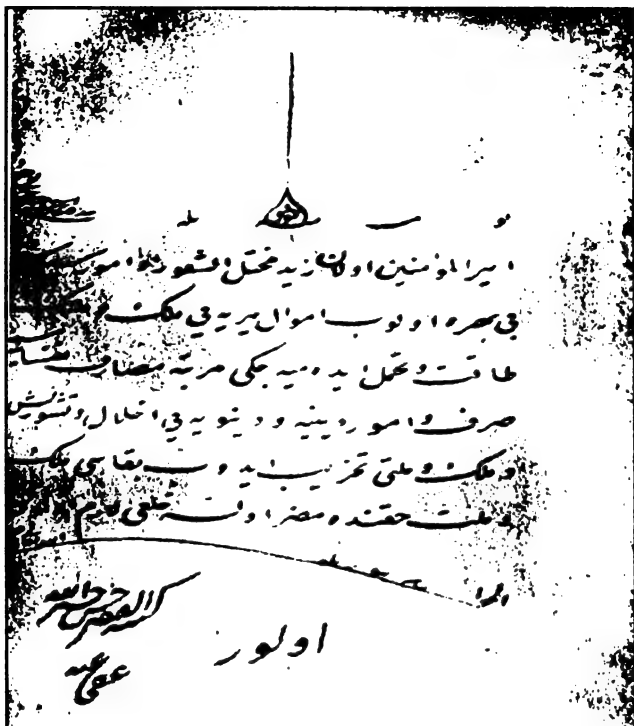 امير المؤمنين اولان زيد مختل الشعور و امور
بى بهره اولوب اموال ميريه يى ملك و
طاقت و تحمل ايده ميه جكى مرتبه مصارف
صرف و امور دينيه و دنيويه يى اخلال و تشويش
و ملك و ملتى تخريب ايدوب بقاسى ملك
و ملت حقنده مضر اولسه خلعى لازم
اولور
كتبه الفقير حسن خير الله
عفى عنه